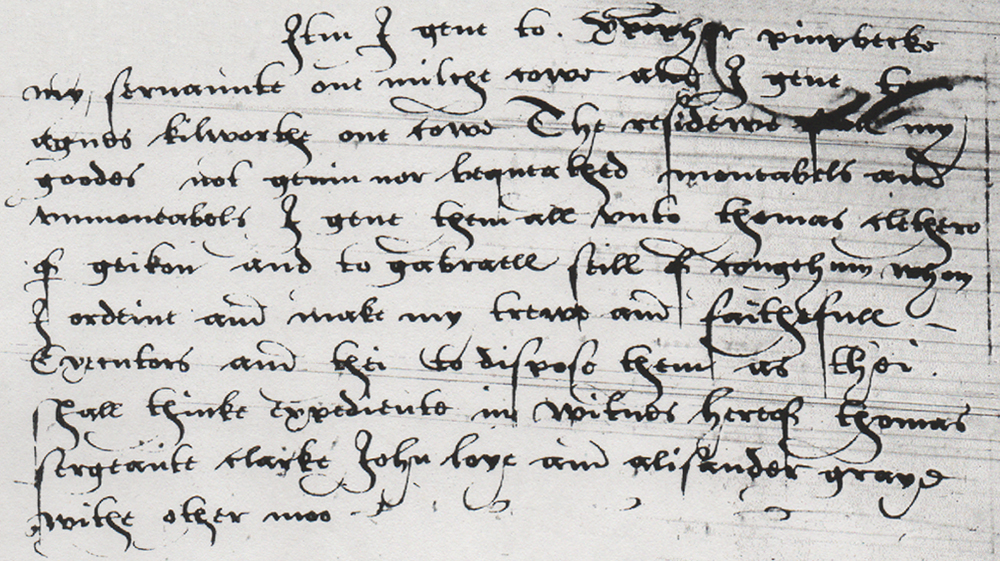 Itm I geue to. pinybecke
my seruaunte one milche cowe and I geue to
agnes kilworthe one cowe The residewe of all my
goodes not geuin nor bequeathed moueabels and
vnmoueabels I geue them all vnto thomas clethero
of geikon and to gabraell still of coungehm whom
I ordeine and make my trewe and faithefull
Executors and thei to dispose them as thei
shall thinke expediente in witnes hereof thomas
sergeante clarke John loye and alisander graye
withe other moo